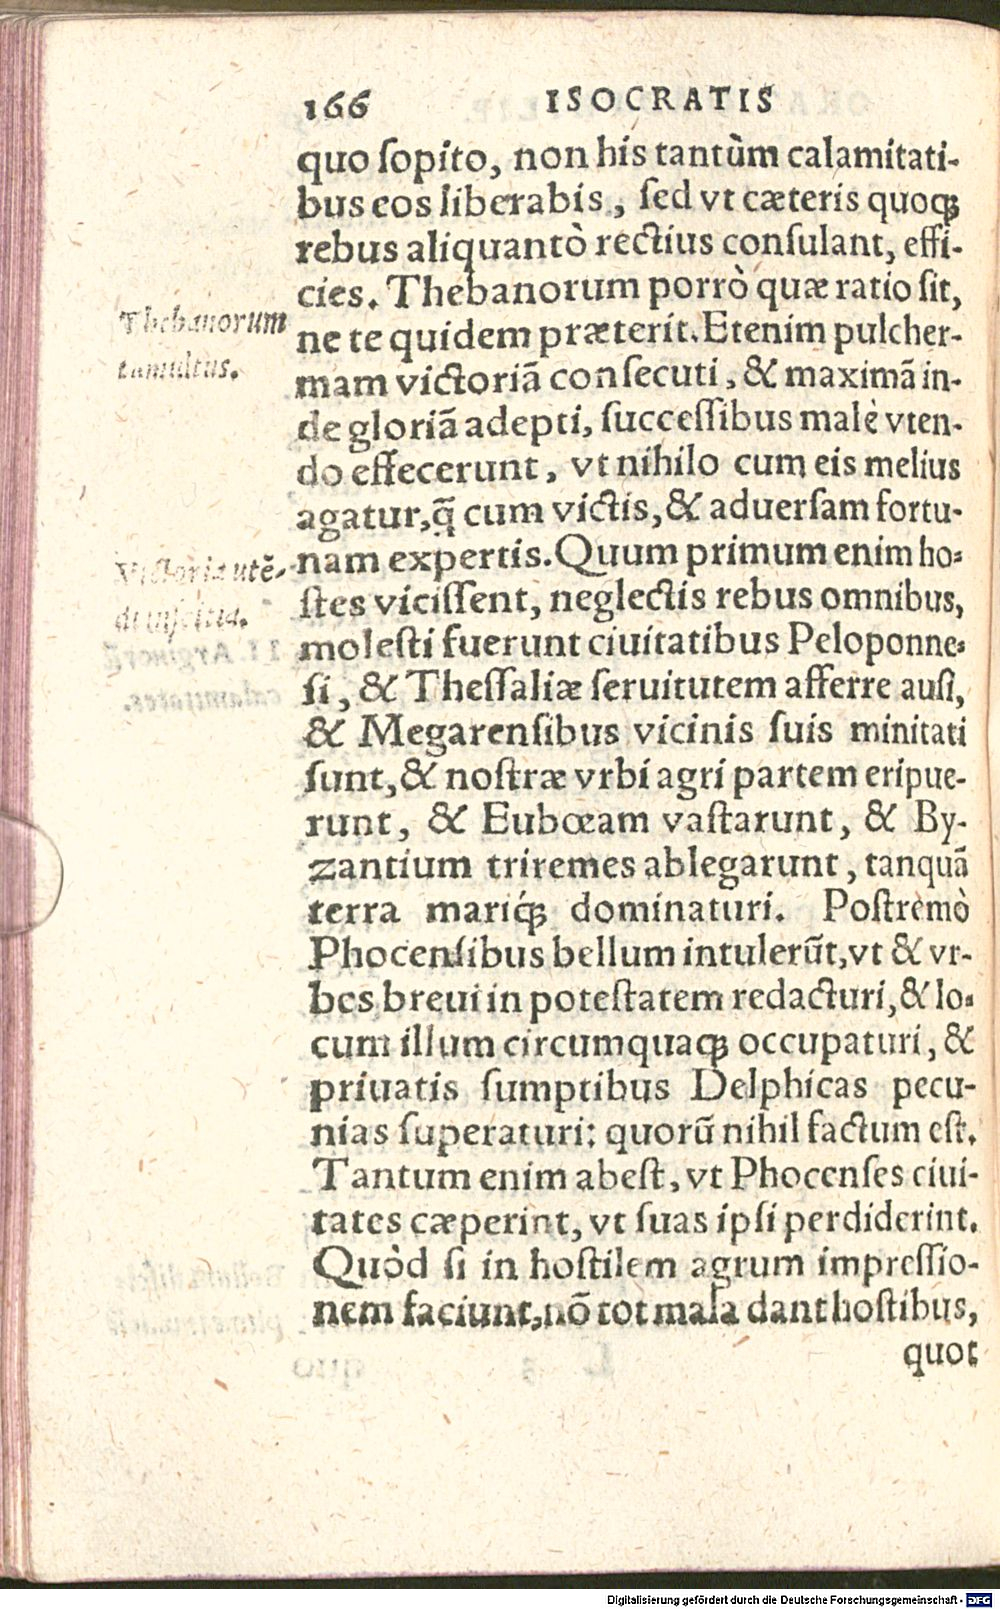 166 ISOCRATIS
quo sopito, non his tantùm calamitati-
bus eos liberabis, sed vt cæteris quoq;
rebus aliquantò rectius consulant, effi-
cies. Thebanorum porrò quæ ratio sit,
Thebanorum
tumultus.
ne te quidem præterit. Etenim pulcher-
mam victoriā consecuti, & maximā in-
de gloriā adepti, successibus malè vten-
do effecerunt, vt nihilo cum eis melius
agatur, q̄ cum victis, & aduersam fortu-
nam expertis. Quum primum enim ho-
Victoria utē-
di inscitia.
stes vicissent, neglectis rebus omnibus,
molesti fuerunt ciuitatibus Peloponne-
si, & Thessaliæ seruitutem afferre ausi,
& Megarensibus vicinis suis minitati
sunt, & nostræ vrbi agri partem eripue-
runt, & Eubœam vastarunt, & By-
zantium triremes ablegarunt, tanquā
terra mariq́; dominaturi. Postremò
Phocensibus bellum intulerūt, vt & vr-
bes breui in potestatem redacturi, & lo-
cum illum circumquaq; occupaturi, &
priuatis sumptibus Delphicas pecu-
nias superaturi: quorū nihil factum est.
Tantum enim abest, vt Phocenses ciui-
tates cæperint, vt suas ipsi perdiderint.
Quòd si in hostilem agrum impressio-
nem faciunt, nō tot mala dant hostibus,
quot
Digitalisierung gefördert durch die Deutsche Forschungsgemeinschaft - DFG